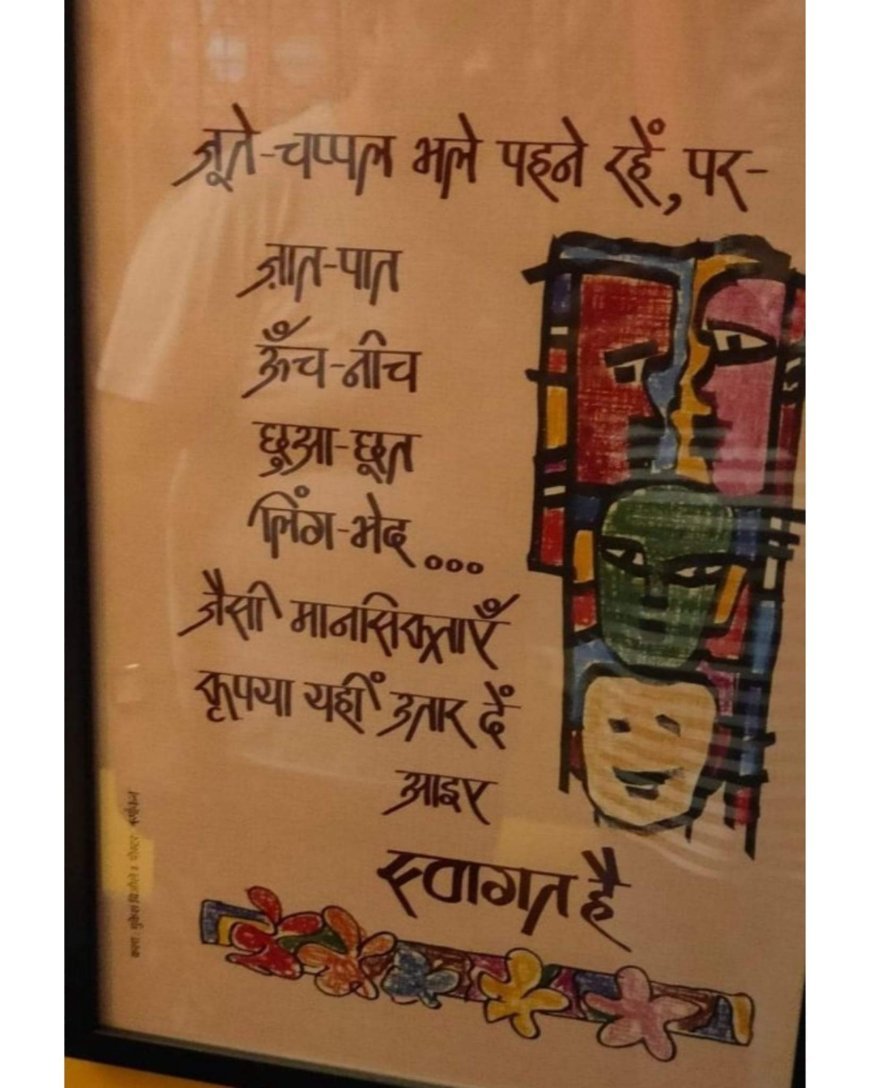 जूते-चप्पल भले पहने रहें, पर-
ज़ात-पात
ऊँच-नीच
छुआ-छूत
लिंग-भेद...
जैसी मानसिकताएँ
कृपया यहीं उतार दें
आइए
स्वागत है
कला : मुकेश बिजौले : पोस्टर :